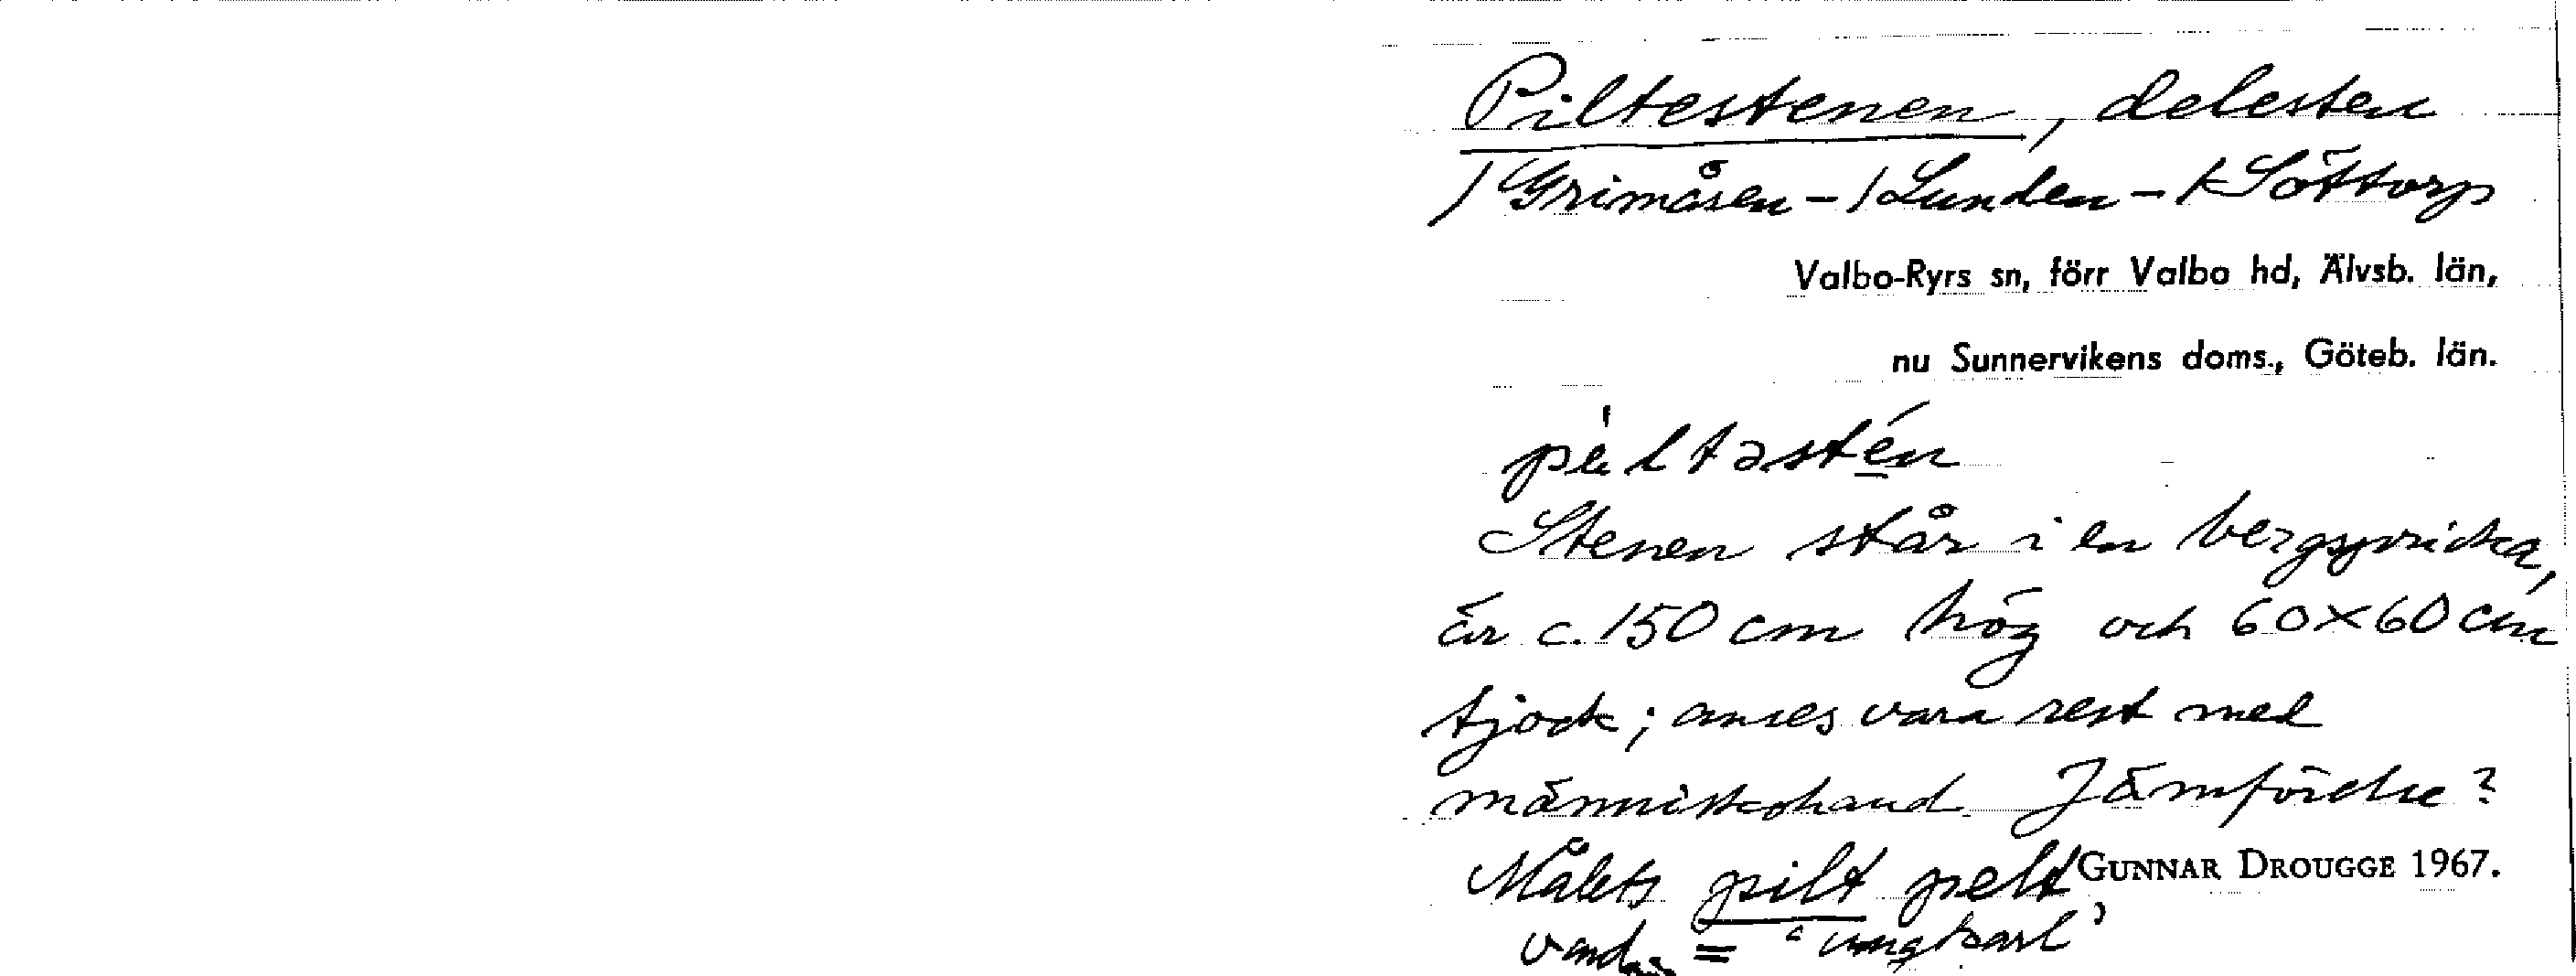 Piltestenen, delesten
/Grimåsen - /Lunden - /Söttorp
Valbo-Ryrs sn, förr Valbo hd, Älvsb. län,
nu Sunnervikens doms., Göteb. län.
Stenen står i en bergspricka,
är c. 150 cm hög och 60×60 cm
tjock; anses vara rest med
människohand. Jämförelse?
Målets pilt pelt
GUNNAR DROUGGE 1967.
= 'ungkarl'